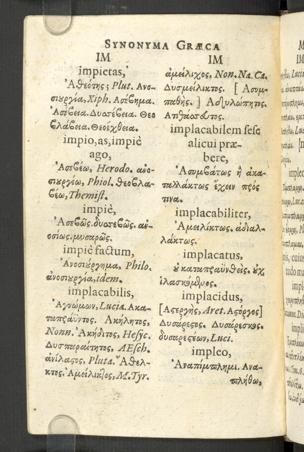 SYNONYMA GRÆCA
IM
impietas,
Ἀθεότης, Plut. Ἀνο-
σιυργία, Xiph. Ἀσέβημα.
Ἀσέβεια. Δυσσέβεια. Θεο
βλάβεια. Θεοιχθεία.
impio, as, impiè
ago,
Ἀσεβέω, Herodo. ἀνο-
σιυργέω, Phiol. Θεοβλα-
βέω, Themist.
impiè,
Ἀσεβῶς. δυσσεβῶς. ἀν-
οσίως. μυσαρῶς.
impiè factum,
Ἀνοσιύργημα, Philo.
ἀνοσιυργία, idem.
implacabilis,
Ἀγνώμων, Lucia. Ἀκα-
ταπαύστος. Ἀκήλητος,
Nonn. Ἀκήδιτος, Hesic.
Δυσπαραίτητος, AEsch.
ἀνίλαστος, Pluta. Ἄθελ-
κτος. Ἀμείλικτος, M. Tyr.
IM
ἀμείλιχος, Non. Na. Ca.
Δυσμείλικτος. [Ἀσυμ-
παθής.]
implacabilem sese
alicui præ-
bere,
Ἀσυμβάτως ἢ ἀκα-
ταλλάκτως ἔχειν πρός
τινα.
implacabiliter,
Ἀμειλίκτως. ἀδιαλ-
λάκτως.
implacatus,
ὐ καταπραϋνθείς. ὐχ
ἱλασκόμενος.
implacidus,
[Ἀστεργής, Aret. Ἄστοργος]
Δυσάρεστος. Δυσάρεσκος.
δυσαρεστῶν, Luci.
impleo,
Ἀναπίμπλημι. Ἀνα-
πληθω,